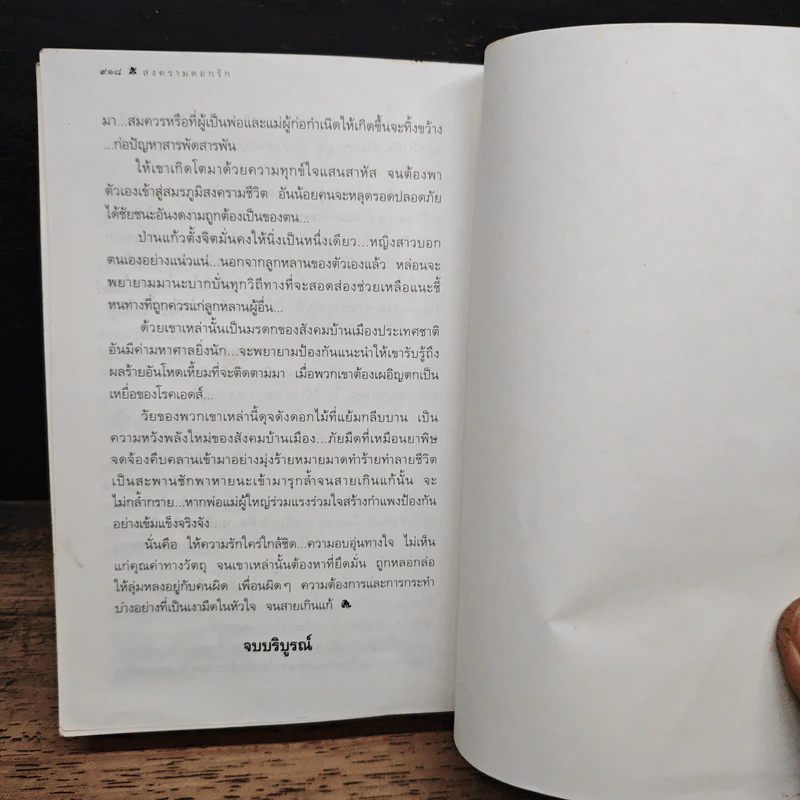 ๙๑๘ สงครามดอกรัก
มา...สมควรหรือที่ผู้เป็นพ่อและแม่ผู้ก่อกำเนิดให้เกิดขึ้นจะทิ้งขว้าง
...ก่อปัญหาสารพัดสารพัน
ให้เขาเกิดโตมาด้วยความทุกข์ใจแสนสาหัส จนต้องพา
ตัวเองเข้าสู่สมรภูมิสงครามชีวิต อันน้อยคนจะหลุดรอดปลอดภัย
ได้ชัยชนะอันงดงามถูกต้องเป็นของตน...
ป่านแก้วตั้งจิตมั่นคงให้นิ่งเป็นหนึ่งเดียว...หญิงสาวบอก
ตนเองอย่างแน่วแน่...นอกจากลูกหลานของตัวเองแล้ว หล่อนจะ
พยายามมานะบากบั่นทุกวิถีทางที่จะสอดส่องช่วยเหลือแนะชี้
หนทางที่ถูกควรแก่ลูกหลานผู้อื่น...
ด้วยเขาเหล่านั้นเป็นมรดกของสังคมบ้านเมืองประเทศชาติ
อันมีค่ามหาศาลยิ่งนัก...จะพยายามป้องกันแนะนำให้เขารับรู้ถึง
ผลร้ายอันโหดเหี้ยมที่จะติดตามมา เมื่อพวกเขาต้องเผอิญตกเป็น
เหยื่อของโรคเอดส์...
วัยของพวกเขาเหล่านี้ดุจดังดอกไม้ที่แย้มกลีบบาน เป็น
ความหวังพลังใหม่ของสังคมบ้านเมือง...ภัยมืดที่เหมือนยาพิษ
จดจ้องคืบคลานเข้ามาอย่างมุ่งร้ายหมายมาดทำร้ายทำลายชีวิต
เป็นสะพานชักพาหายนะเข้ามารุกล้ำจนสายเกินแก้นั้น จะ
ไม่กล้ำกราย...หากพ่อแม่ผู้ใหญ่ร่วมแรงร่วมใจสร้างกำแพงป้องกัน
อย่างเข้มแข็งจริงจัง
นั่นคือ ให้ความรักใคร่ใกล้ชิด...ความอบอุ่นทางใจ ไม่เห็น
แก่คุณค่าทางวัตถุ จนเขาเหล่านั้นต้องหาที่ยึดมั่น ถูกหลอกล่อ
ให้ลุ่มหลงอยู่กับคนผิด เพื่อนผิดๆ ความต้องการและการกระทำ
บางอย่างที่เป็นเงามืดในหัวใจ จนสายเกินแก้
จบบริบูรณ์